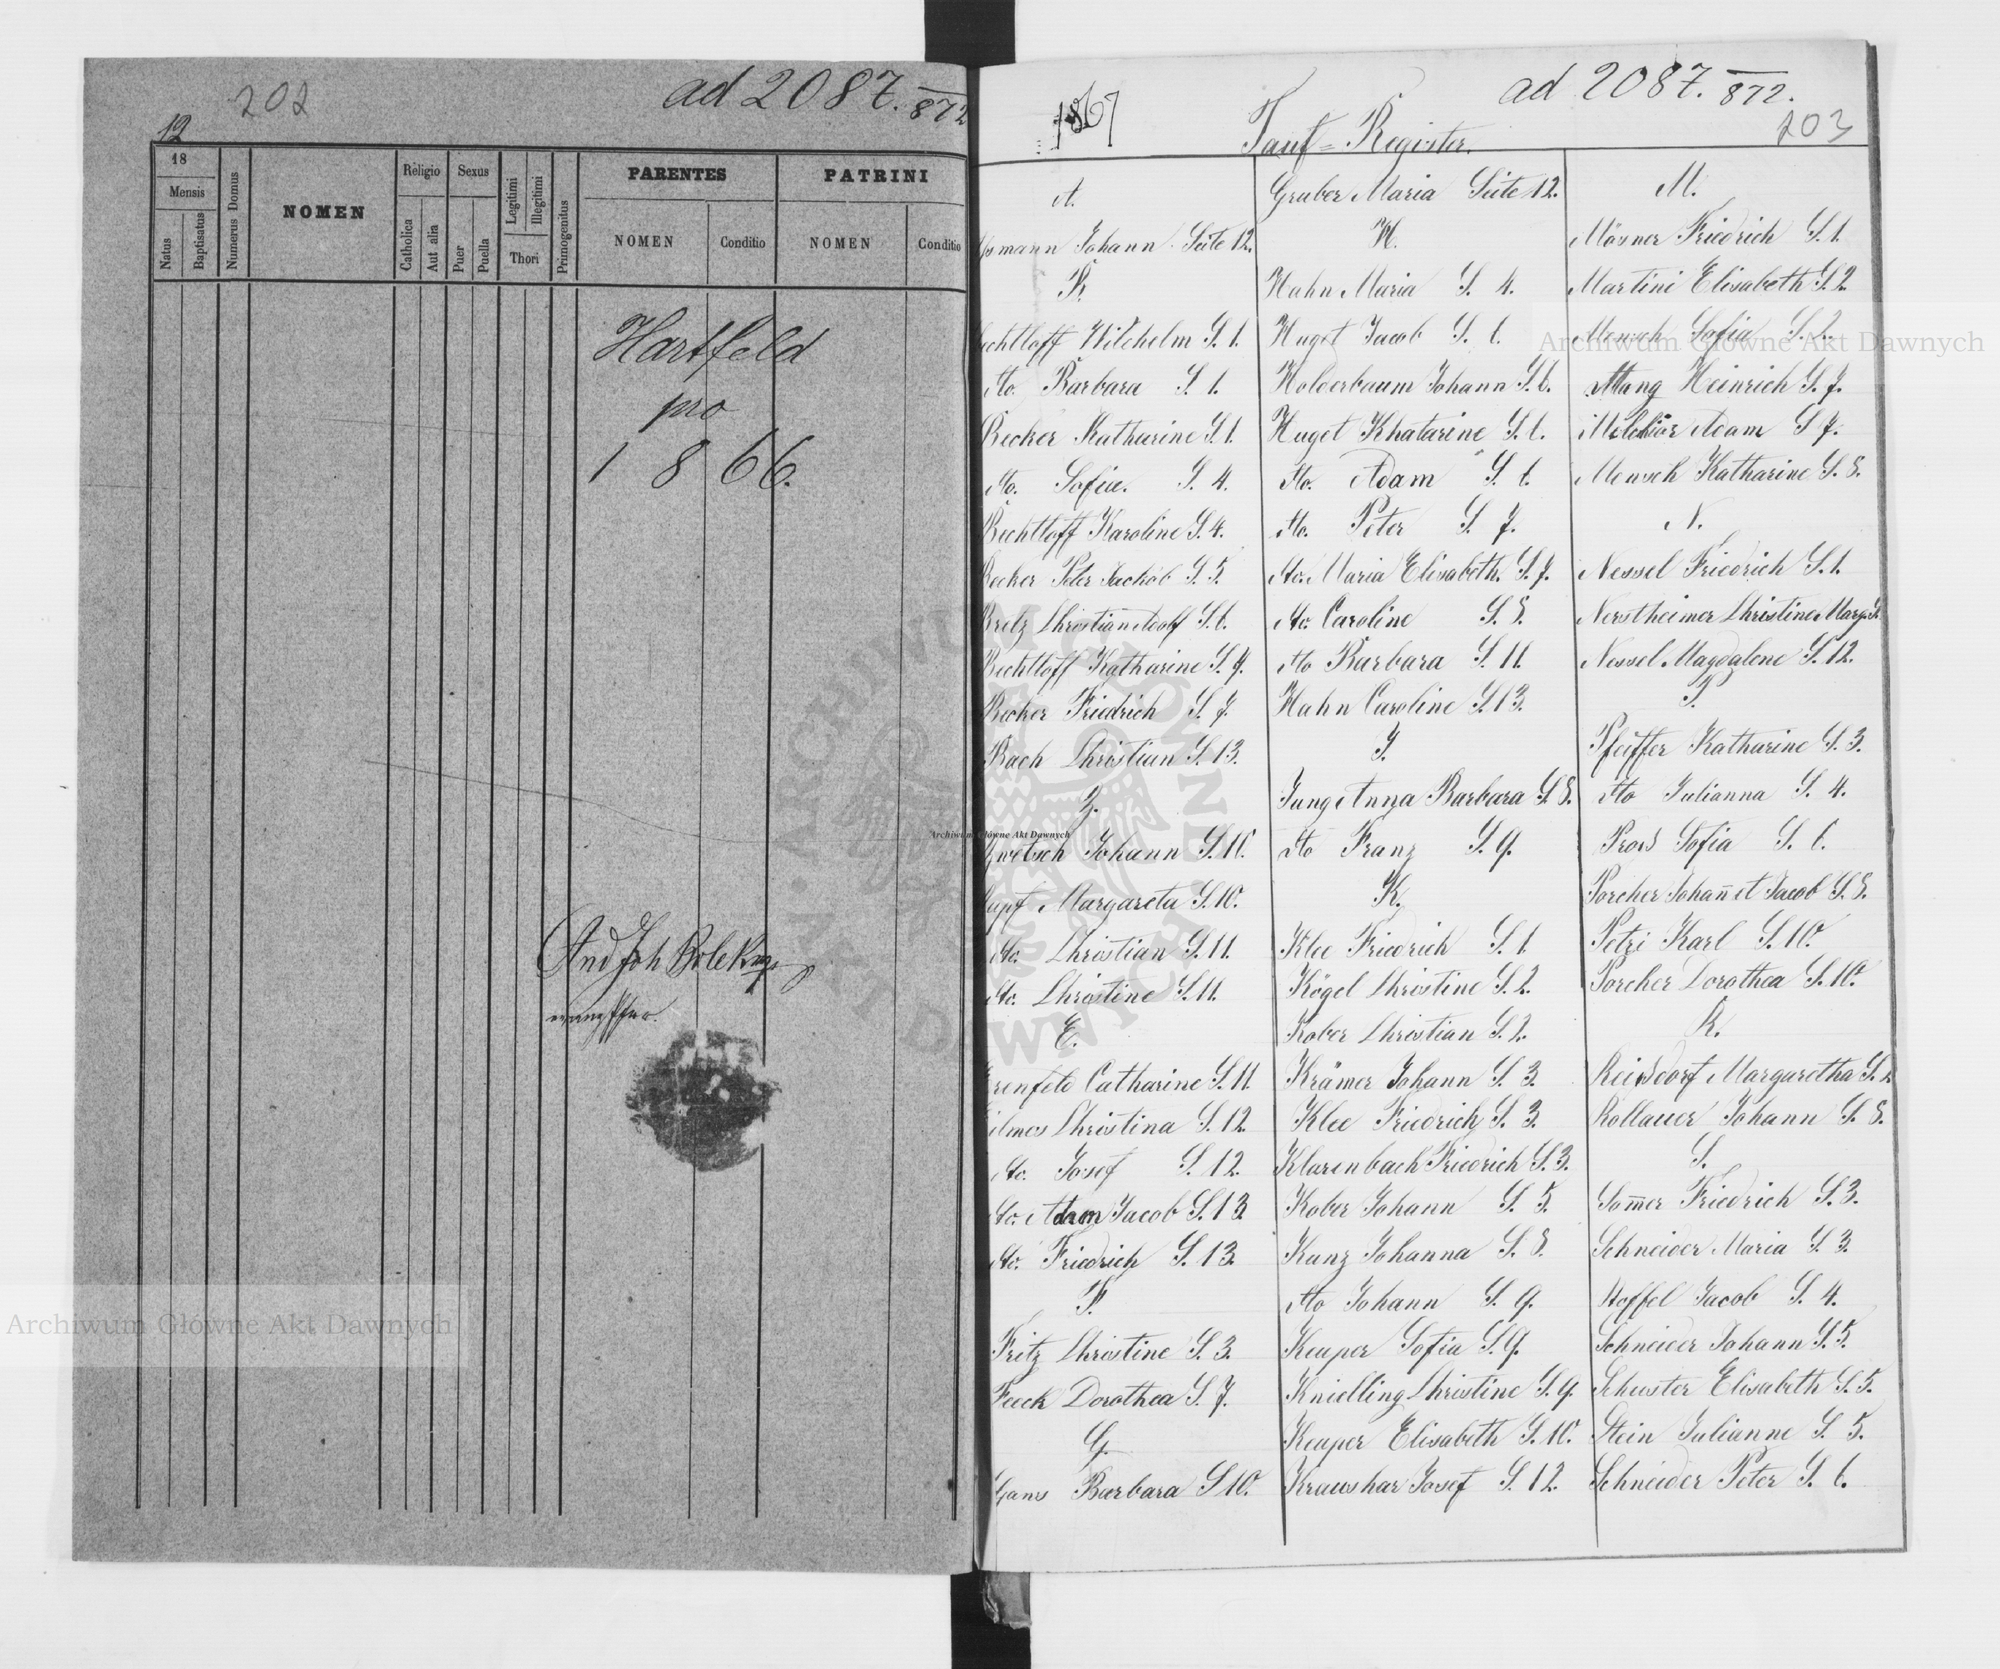 202
ad 2087. 872
12
18
Mensis
Natus
Baptisatus
Numerus Domus
NOMEN
Religio
Catholica
Aut alia
Sexus
Puer
Puella
Legitimi
Illegitimi
Thori
Primogenitus
PARENTES
NOMEN
Conditio
PATRINI
NOMEN
Conditio
Hartfeld
pro
1866.
And Joh Bolek
1867
ad 2087. 872.
203
Tauf-Register.
A.
mann Johann Seite 12.
B.
chtloff Wilchelm S. 1.
dto. Barbara S. 1.
Becker Katharine S. 1.
dto. Sofia. S. 4.
Bechtloff Karoline S. 4.
Becker Peter Jackob S. 5.
Christian Adolf S. 6.
Bechtloff Katharine S. 7.
Becker Friedrich S. 7.
Bach Christian S. 13.
Z.
Johann S. 10.
Margareta S. 10.
dto. Christian S. 11.
dto. Christine S. 11.
E.
renfeld Catharine S. 11.
ilmes Christina S. 12.
dto. Josef S. 12.
dto. Adam Jacob S. 13
dto. Friedrich S. 13.
F.
Fritz Christine S. 3.
Feeck Dorothea S. 7.
G.
Gans Barbara S. 10.
Gruber Maria Seite 12.
H.
Hahn Maria S. 4.
Huget Jacob S. 6.
Holderbaum Johann S. 6.
Huget Khatarine S. 6.
dto. Adam S. 6.
dto. Peter S. 7.
dto. Maria Elisabeth. S. 7.
dto. Caroline S. 8.
dto Barbara S. 11.
Hahn Caroline S. 13.
J.
Jung Anna Barbara S. 8.
dto Franz S. 9.
K.
Klee Friedrich S. 1.
Kögel Christine S. 2.
Kober Christian S. 2.
Krämer Johann S. 3.
Klee Friedrich S. 3.
Klarenbach Friedrich S. 3.
Kober Johann S. 5.
Kunz Johanna S. 8.
dto Johann S. 9.
Keuper Sofia S. 9.
Knielling Christine S. 9.
Keuper Elisabeth S. 10.
Kraushar Josef S. 12.
M.
Mösner Friedrich S. 1.
Martini Elisabeth S. 2.
Mensch Sofia S. 2.
Mang Heinrich S. 7.
Melchior Adam S. 7.
Mensch Katharine S. 8.
N.
Nessel Friedrich S. 1.
Nerstheimer Christine Marg. S.
Nessel Magdalene S. 12.
P.
Pfeiffer Katharine S. 3.
dto Julianna S. 4.
Sofia S. 6.
Porcher Johañ et Jacob S. 8.
Petri Karl S. 10.
Porcher Dorothea S. 10.
R.
Reisdorf Margaretha S. 2
Rollauer Johann S. 8.
S.
Som̃er Friedrich S. 3.
Schneider Maria S. 3.
Stoffel Jacob S. 4.
Schneider Johann S. 5.
Schuster Elisabeth S. 5.
Stein Julianne S. 5.
Schneider Peter S. 6.
Archiwum Główne Akt Dawnych
Archiwum Główne Akt Dawnych
Archiwum Główne Akt Dawnych
ARCHIWUM GŁÓWNE AKT DAWNYCH